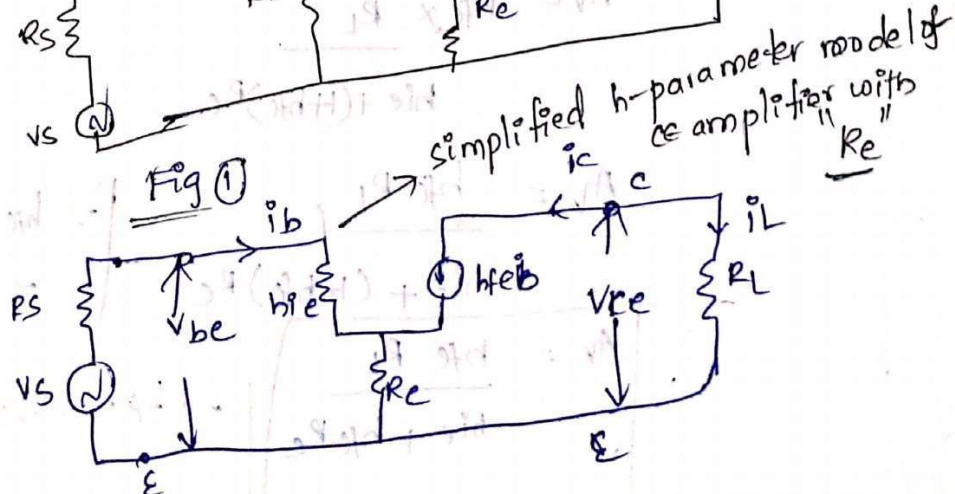 Re
RS
VS
simplified h-parameter model of
CE amplifier with
"Re"
Fig ①
ib
ic
C
iL
RS
Vbe
hie
hfeib
Vce
RL
VS
Re
E
E